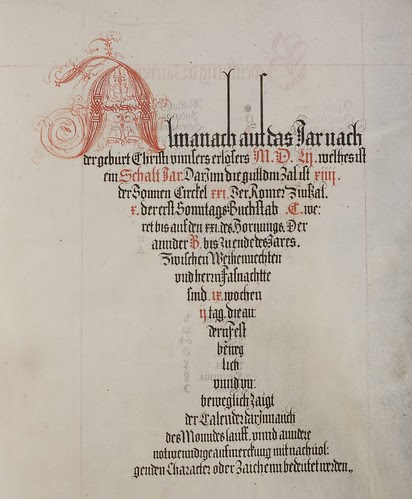 Almanach auf das Jar nach
der gebürt Christi vnnsers erlösers M. D. Lij. welhes ist
ein Schalt Jar. Darinn die gulldin Zal ist xiiij.
der Sonnen Circkel xxi. Der Romer Zinszal.
x. der erst Sonntags Buchstab .C. we:
ret bis auf den xxi. des Hornungs. Der
annder B. bis zu ende des Jares.
Zwischen Weihennechten
vnd herrn Fasnachtte
sind .ix. wochen
ij tag. die an:
dern fest
beweg
lich
vnnd vn:
beweglich Zaigt
der Calender darjnn auch
des Monndes lauff. vnnd anndere
notwenndige aufmerckung mit nachuol:
genden Character oder Zaichenn bedeütet werden.